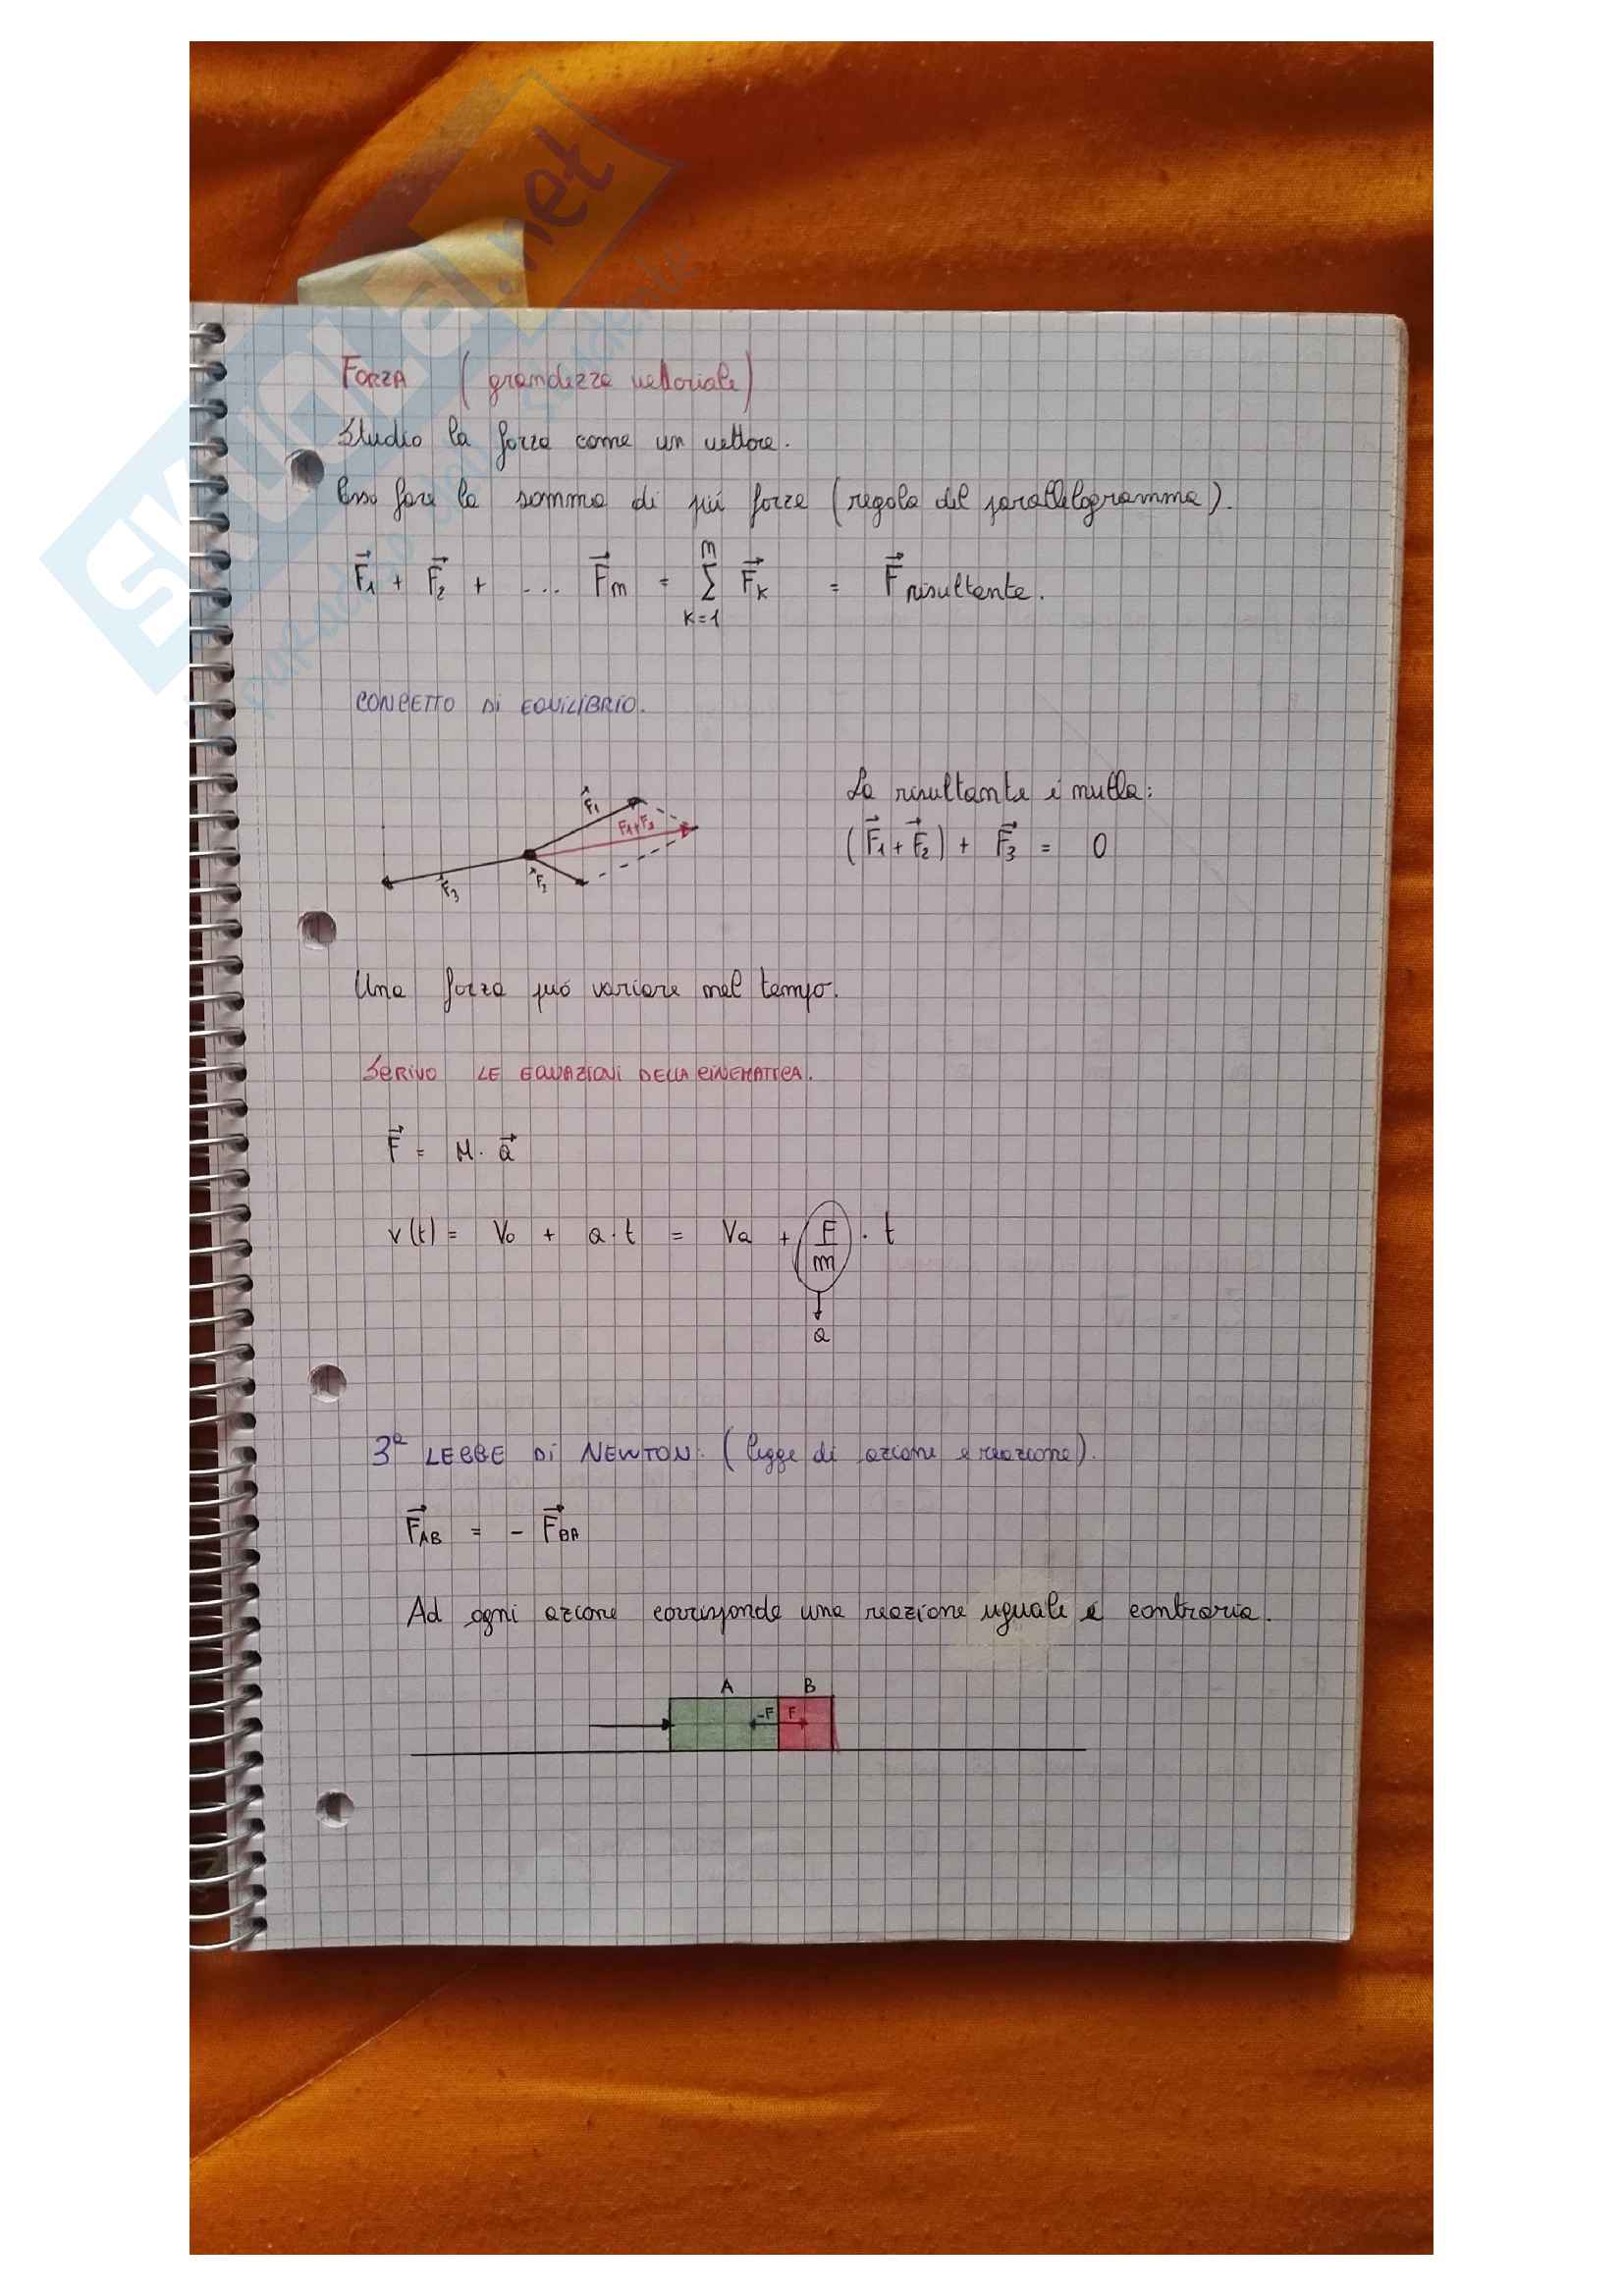 FORZA (grandezza vettoriale)
Studio la forza come un vettore.
Posso fare la somma di più forze (regola del parallelogramma).
F⃗1 + F⃗2 + ... F⃗m = m∑k=1 F⃗k = F⃗ risultante.
CONCETTO DI EQUILIBRIO.
F⃗1
F1+F2
F⃗3
F⃗2
La risultante è nulla:
(F⃗1 + F⃗2) + F⃗3 = 0
Una forza può variare nel tempo.
SCRIVO LE EQUAZIONI DELLA CINEMATICA.
F⃗ = M · a⃗
v(t) = V0 + a · t = Va + F/m · t
a
3ª LEGGE DI NEWTON: (legge di azione e reazione).
F⃗AB = - F⃗BA
Ad ogni azione corrisponde una reazione uguale e contraria.
A B
-F F
SKUOLA.net